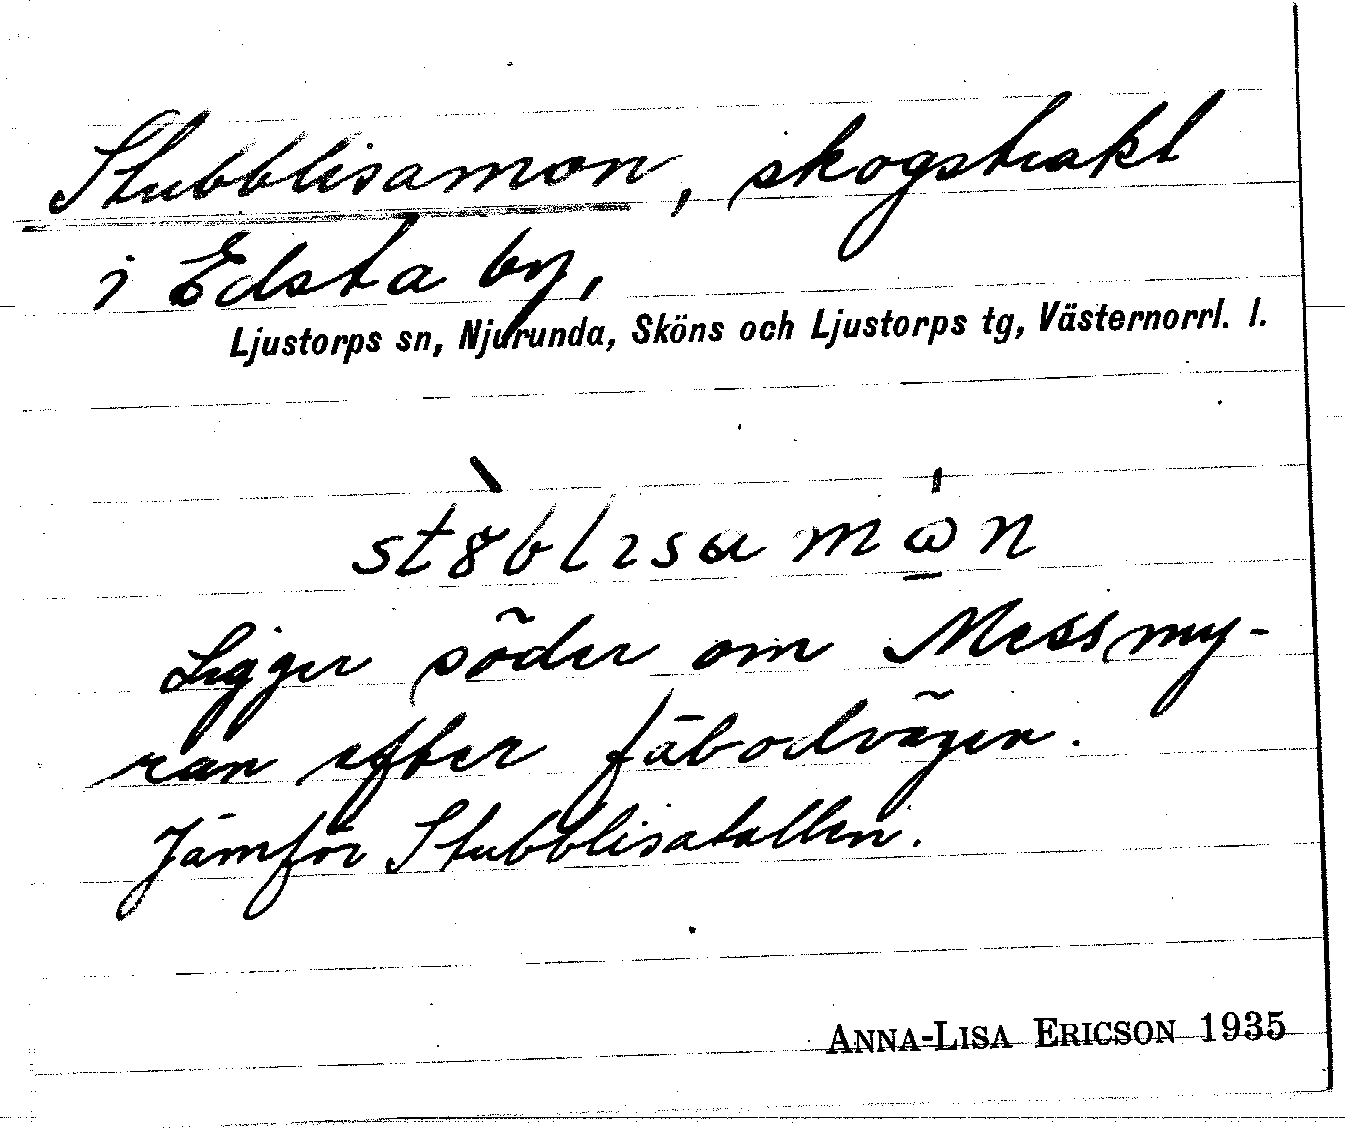 Stubblisamon, skogstrakt
i Edsta by,
Ljustorps sn, Njurunda, Sköns och Ljustorps tg, Västernorrl. l.
st8̀blɪsamώ̲n
Ligger söder om Messmy-
ran efter fäbodvägen.
Jämför Stubblisatallen.
ANNA-LISA ERICSON 1935